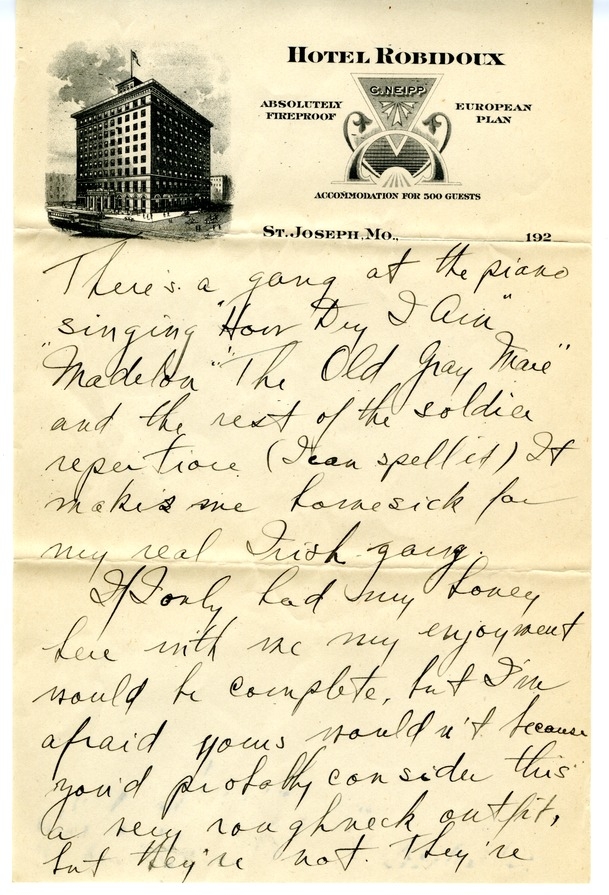 HOTEL ROBIDOUX
C. NEIPP
ABSOLUTELY
FIREPROOF
EUROPEAN
PLAN
ACCOMMODATION FOR 500 GUESTS
ST. JOSEPH, MO., 192
There's a gang at the piano
singing "How Dry I Am"
"Madelon" "The Old Gray Mare"
and the rest of the soldier
repertiore (I can spell it) It
makes me homesick for
my real Irish gang.
If I only had my honey
here with me my enjoyment
would be complete, but I'm
afraid yours wouldn't because
you'd probably consider this
a very roughneck outfit,
but they're not. They're